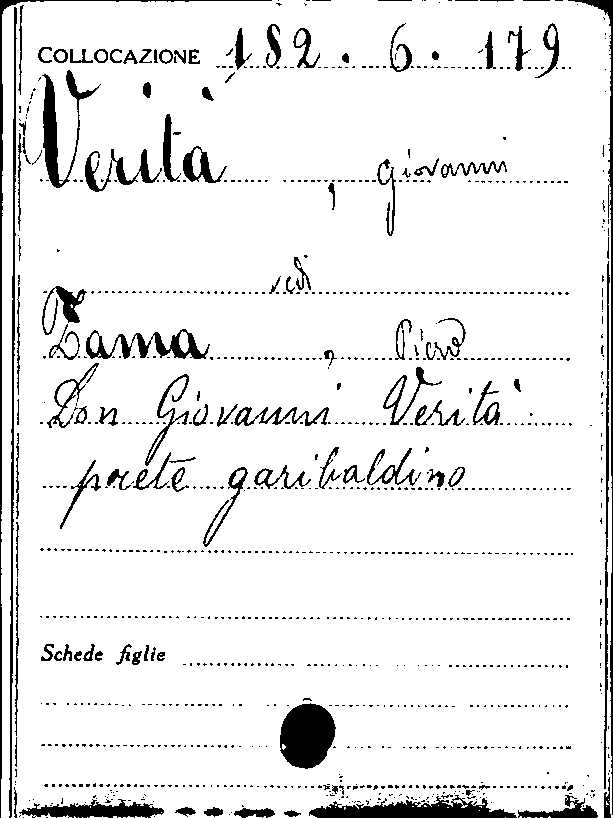 COLLOCAZIONE 182.6.179
Verità, Giovanni
vedi
Zama, Piero
Don Giovanni Verità
prete garibaldino
Schede figlie